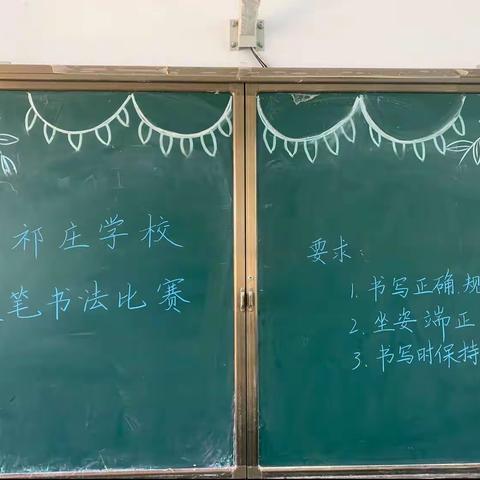 祁庄学校
笔书法比赛
要求：
1. 书写正确.规
2. 坐姿端正
3. 书写时保持